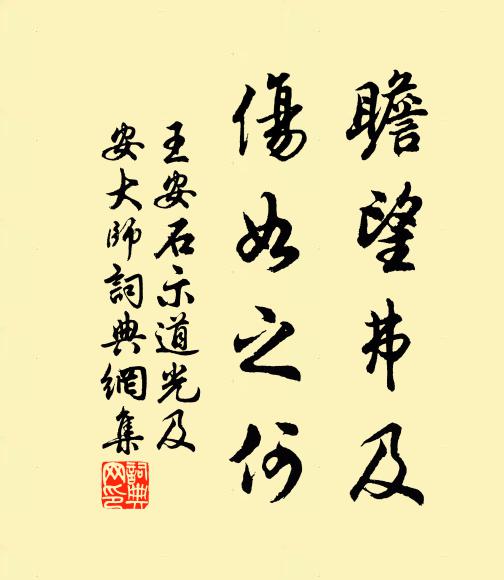 瞻望弗及
傷如之何
王安石示道光及
安大師詞典網集
詞典網印